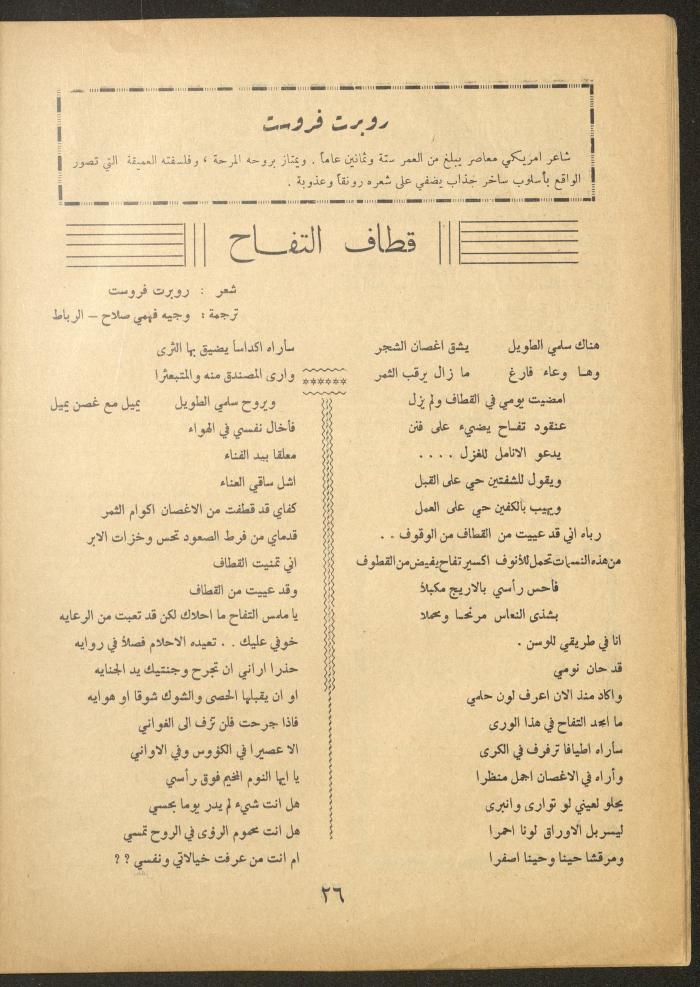 روبرت فروست
شاعر امريكي معاصر يبلغ من العمر ستة وثمانين عاماً . ويمتاز بروحه المرحة ، وفلسفته العميقة التي تصور
الواقع بأسلوب ساخر جذاب يضفي على شعره رونقاً وعذوبة .
قطاف التفاح
شعر : روبرت فروست
ترجمة : وجيه فهمي صلاح – الرباط
هناك سلمي الطويل يشق اغصان الشجر
وهنا وعاء فارغ ما زال يرقب الثمر
امضيت يومي في القطاف ولم يزل
عنقود تفاح يضيء على فنن
يدعو الانامل للغزل . . . .
ويقول للشفتين حي على القبل
ويهيب بالكفين حي على العمل
رباه اني قد عييت من القطاف من الوقوف . .
من هذه النسمات تحمل للأنوف اكسير تفاح يفيض من القطوف
فأحس رأسي بالاريج مكبلاً
بشذى النعاس مرنحا ومحملا
انا في طريقي للوسن .
قد حان نومي
واكاد منذ الان اعرف لون حلمي
ما امجد التفاح في هذا الورى
سأراه اطيافا ترفرف في الكرى
وأراه في الاغصان اجمل منظرا
يحلو لعيني لو توارى وانبرى
ليسربل الاوراق لونا احمرا
ومرقشا حينا وحينا اصفرا
سأراه اكداساً يضيق بها الثرى
وارى المصندق منه والمتبعثرا
ويروح سلمي الطويل يميل مع غصن يميل
فأخال نفسي في الهواء
معلقا بيد الفناء
اشل ساقي العناء
كفاي قد قطفت من الاغصان اكوام الثمر
قدماي من فرط الصعود تحس وخزات الابر
اني تمنيت القطاف
وقد عييت من القطاف
يا ملمس التفاح ما احلاك لكن قد تعبت من الرعايه
خوفي عليك . . تعيده الاحلام فصلاً في روايه
حذرا اراني ان تجرح وجنتيك يد الجنايه
او ان يقبلها الحصى والشوك شوقا او هوايه
فاذا جرحت فلن تزف الى الغواني
الا عصيرا في الكؤوس وفي الاواني
يا ايها النوم المخيم فوق رأسي
هل انت شيء لم يدر يوما بحسي
هل انت محموم الرؤى في الروح تمسي
ام انت من عرفت خيالاتي ونفسي ؟ ؟
٢٦